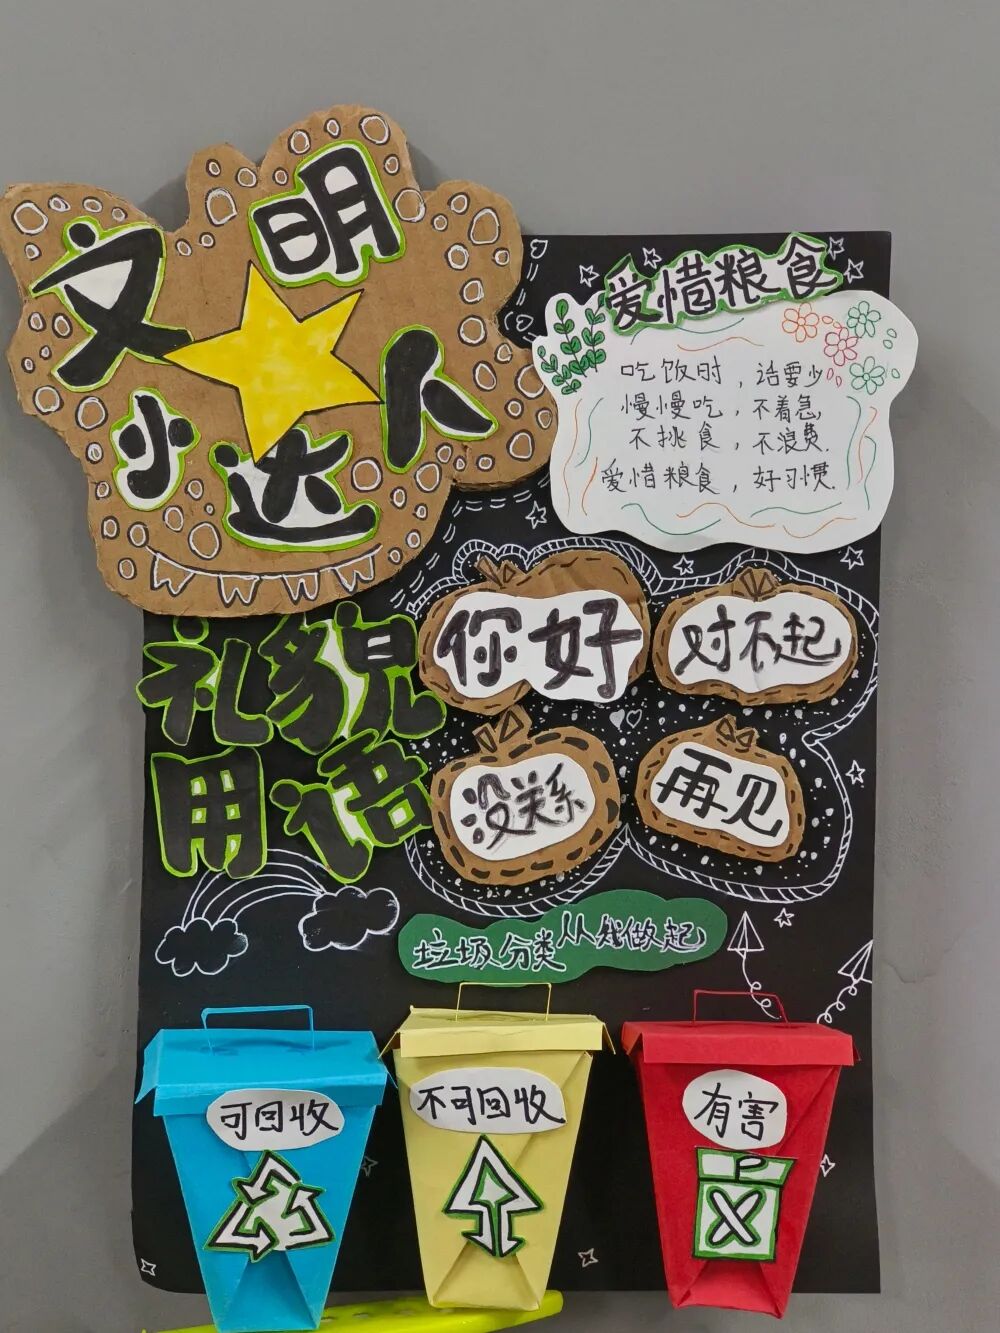 文明
小达人
爱惜粮食
吃饭时，话要少
慢慢吃，不着急
不挑食，不浪费.
爱惜粮食，好习惯.
礼貌
用语
你好
对不起
没关系
再见
垃圾分类从我做起
可回收
不可回收
有害